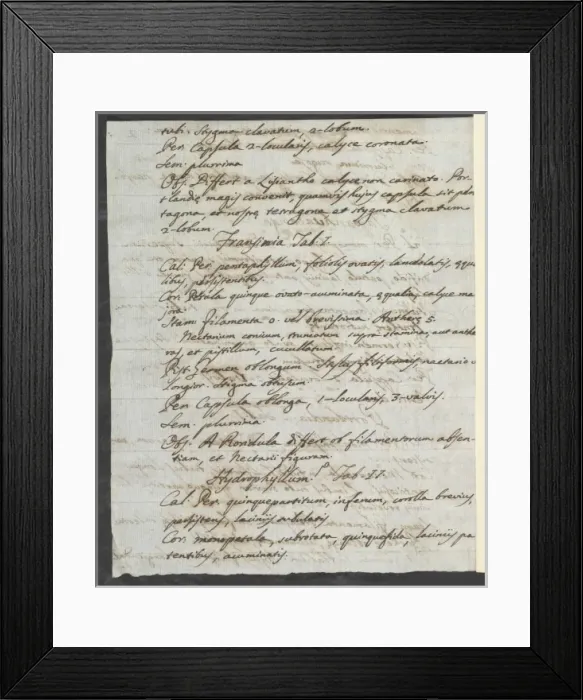 tub: Stygma clavatum, 2-lobum.
Per. Capsula 2-locularis, calyce coronata.
Sem. plurima
Obs. Differt a Lisiantho calyce non carinato. Por-
tlandiæ magis convenit, quamvis hujus capsula sit pen
tagona, et nostræ tetragona et stygma clavatum
2-lobum
Fransinia Tab. I.
Cal. Per. pentaphyllum, foliolis ovatis, æqua
libus, persistentibus.
Cor. Petala quinque ovato-acuminata, æqualia, calyce ma
jora.
Stam. filamenta 0. vel brevissima. Antheræ 5.
Nectarium conicum, truncatum supra stamina, aut anthe
ras, et pistillum, cucullatum.
Pist. Germen oblongum. Stylus filiformis, nectario
longior. Stigma obtusum.
Per. Capsula oblonga, 1-locularis, 3-valvis.
Sem. plurima.
Obs. A Roridula differt ob filamentorum absen-
tiam, et Nectarii figuram.
Hydrophyllum. Tab. II.
Cal. Per. quinquepartitum, inferum, corolla brevius,
persistens, laciniis
Cor. monopetala, subrotata, quinquefida, laciniis pa
tentibus, acuminatis.